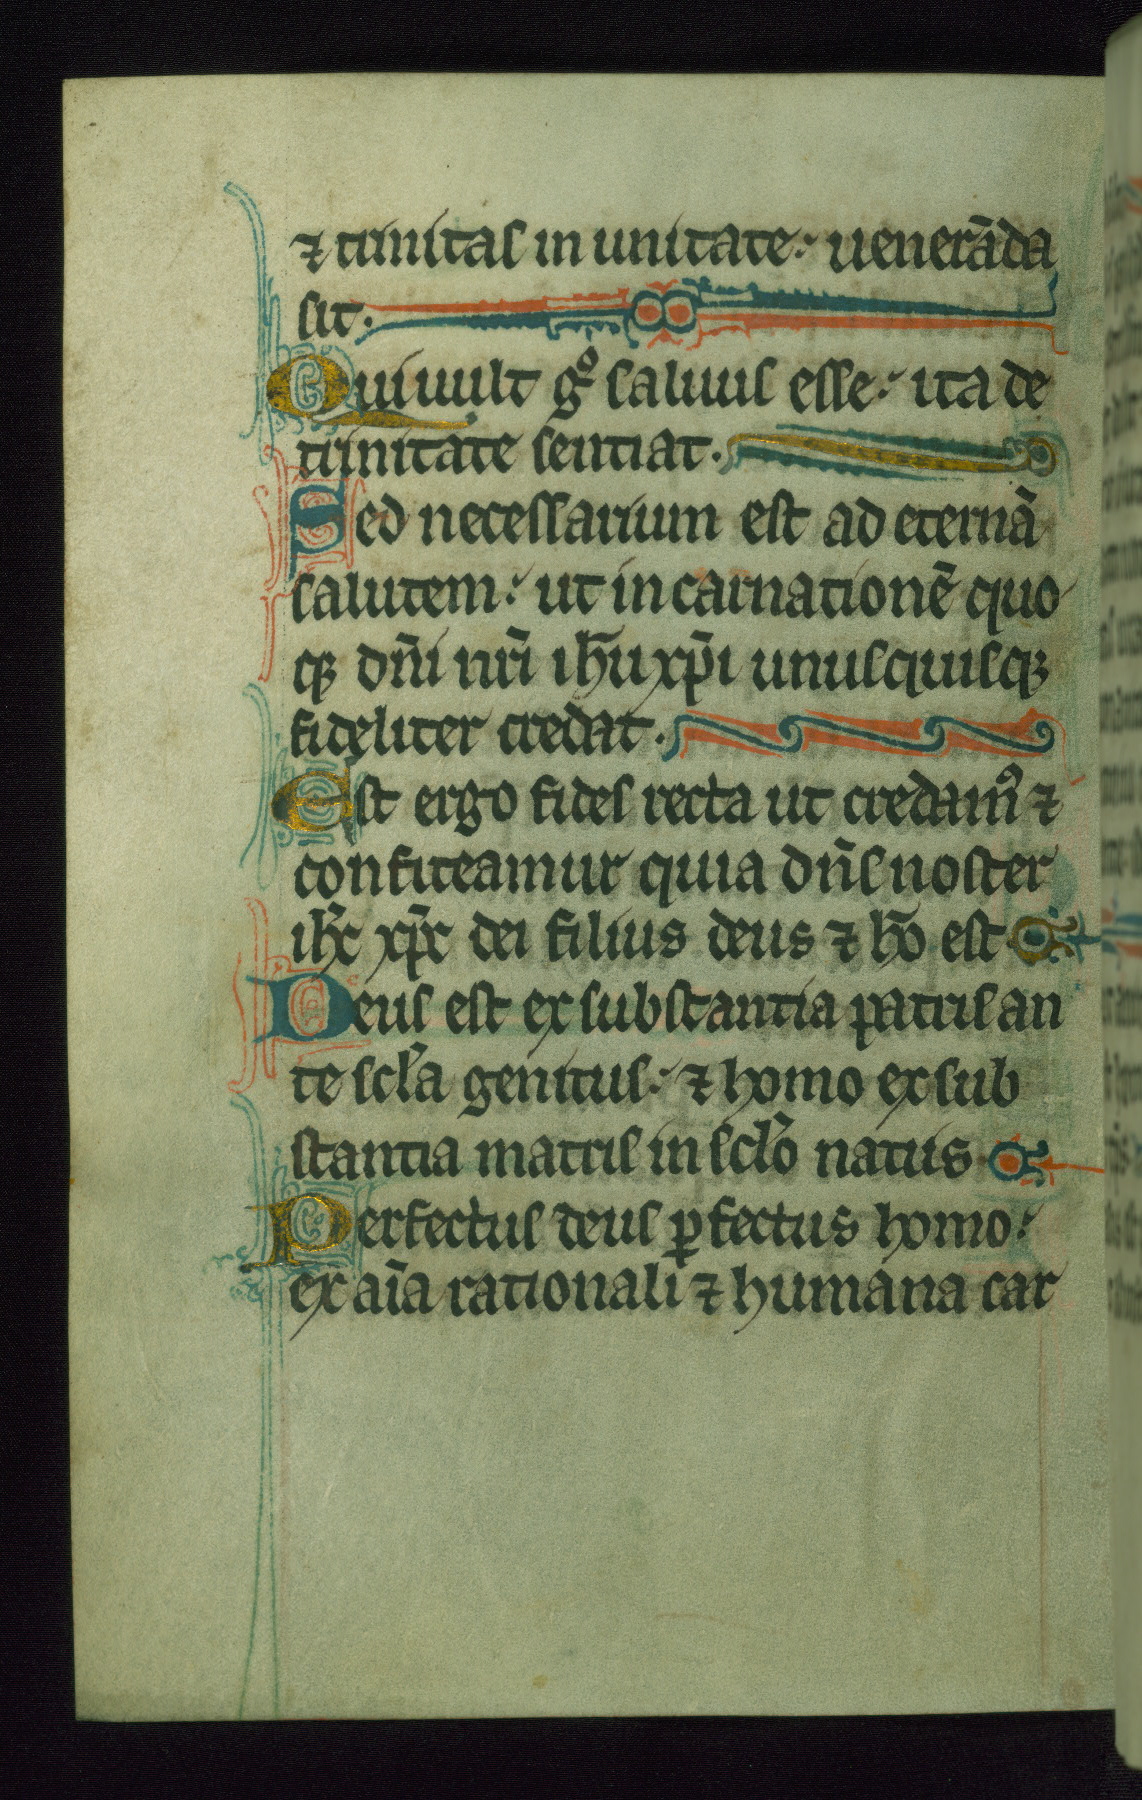 ⁊ trinitas in unitate: uenerāda
sit.
Qui uult gͦ saluus esse: ita de
trinitate sentiat.
Sed necessarium est ad eternā
salutem: ut incarnationē quo
qꝫ dn̄i nr̄i ih̄u xp̄i unusquisqꝫ
fideliter credat.
Est ergo fides recta ut credamꝰ ⁊
confiteamur quia dn̄s noster
ih̄c xp̄c dei filius deus ⁊ hō est
Deus est ex substantia patris an
te scl̄a genitus: ⁊ homo ex sub
stantia matris in scl̄o natus
Perfectus deus ꝑfectus homo:
ex aīa rationali ⁊ humana car